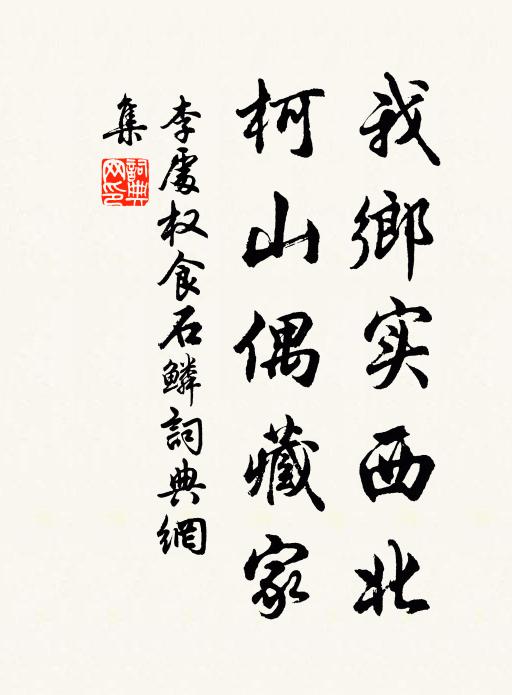 我鄉实西北
柯山偶藏家
李處权食石鱗詞典網
集
詞典網印